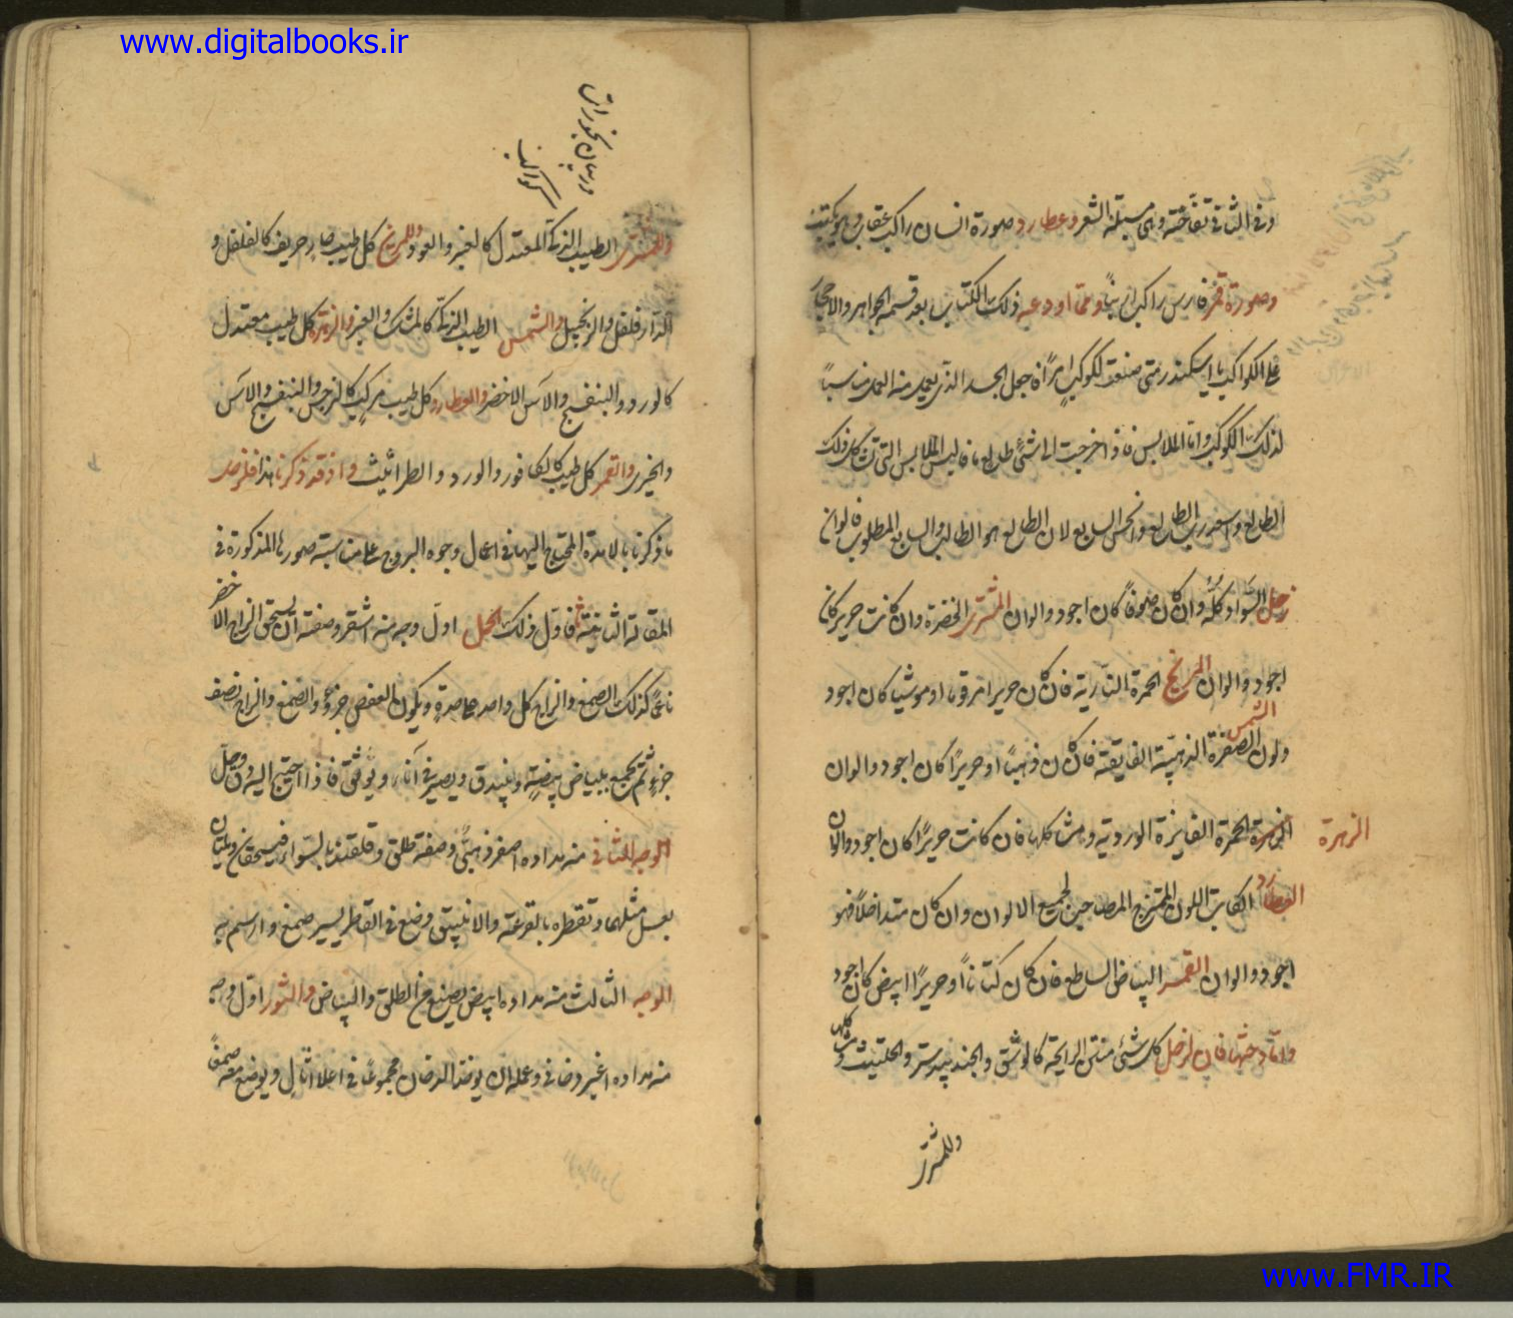 www.digitalbooks.ir
وفى الثانى تفاحته وهى مسبلة الشعر وعطارد صورة انسان راكب عقاب وهو يكتب
وصورة قمر فارس راكب ارنبا ومما اودعه ذلك الكتاب بعد قسمة الجواهر والاحجار
على الكواكب يا اسكندر متى صنعت لكوكب امرًا فاجعل الجسد الذى يعمد منه العمد مناسبًا
لذلك الكوكب واما الملابس فاذا خرجت الى شئ طلبع فالبس الملابس التى تشاكل ذلك
الطالع واسعد رب الطالع وانحس السابع لان الطالع هو الطالب والسابع المطلوب فالوان
زحل السواد كله وان كان صوفًا كان اجود والوان المشترى الخضرة وان كانت حرير كان
اجود والوان المريخ الحمرة النارية فان كان حريرا مرقوما او موشيا كان اجود
ولون الشمس الصفرة الذهبية الفايقة فان كان ذهبًا او حريرًا كان اجود والوان
الزهرة الحمرة الوردية ومشاكلها فان كانت حريرًا كان اجود والوان
الزهرة
العطارد اللون الممتزج لجميع الالوان وان كان متداخلا فهو
اجود والوان القمر البياض الساطع فان كان كتانًا او حريرًا ابيض كان اجود
واما دخنها فان لزحل كل شئ منتن الرايحة كالوشق والجندبيدستر والحلتيت
وللمشترى
در بيان بخورات
كواكب
وللمشترى الطيب الزكى المعتدل كالعنبر والعود وللمريخ كل طيب حار حريف كالفلفل و
الدارفلفل والزنجبيل والشمس الطيب الزكى كالمشك والعنبر والزهرة كل طيب معتدل
كالورد والبنفسج والاس الاخضر والعطارد كل طيب مركب كالنرجس والبنفسج والاس
والخيرى والقمر كل طيب كالكافور والورد والطرائيث واذ قد ذكرنا هذا فلنرصد
ما ذكرنا بالامدة المحتاج اليها فى اعمال وجوه البروج على مناسبة صورها المذكورة فى
المقالة الثانية فاول ذلك الحمل اول وجه منه اشقر وصفته ان يسحق الزاج الاخضر
ناعمًا كذلك الصمغ والزاج كل واحد على حدة ويكون العفص جزء والصمغ والزاج نصف
جزء ثم يجمع ببياض بيضة ويبندق ويصير فى آنار ويوثق فاذا احتج اليه
الوجه الثانى منه مداده اصفر ذهبى وصفته طلق وقلقند بالسواء فيسحقان ويبلان
بعسل مثلهما وتقطره بالقرعة والانبيق وضع فى القاطر يسير صمغ وارسم به
الوجه الثالث منه مداده ابيض يصنع من الطلق والبياض والثور اول وجه
منه مداده اغبر دخانى وعمله ان يوخذ الدخان مجموعًا فى اعلا اثال ويوضع معه صمغ
www.FMR.IR